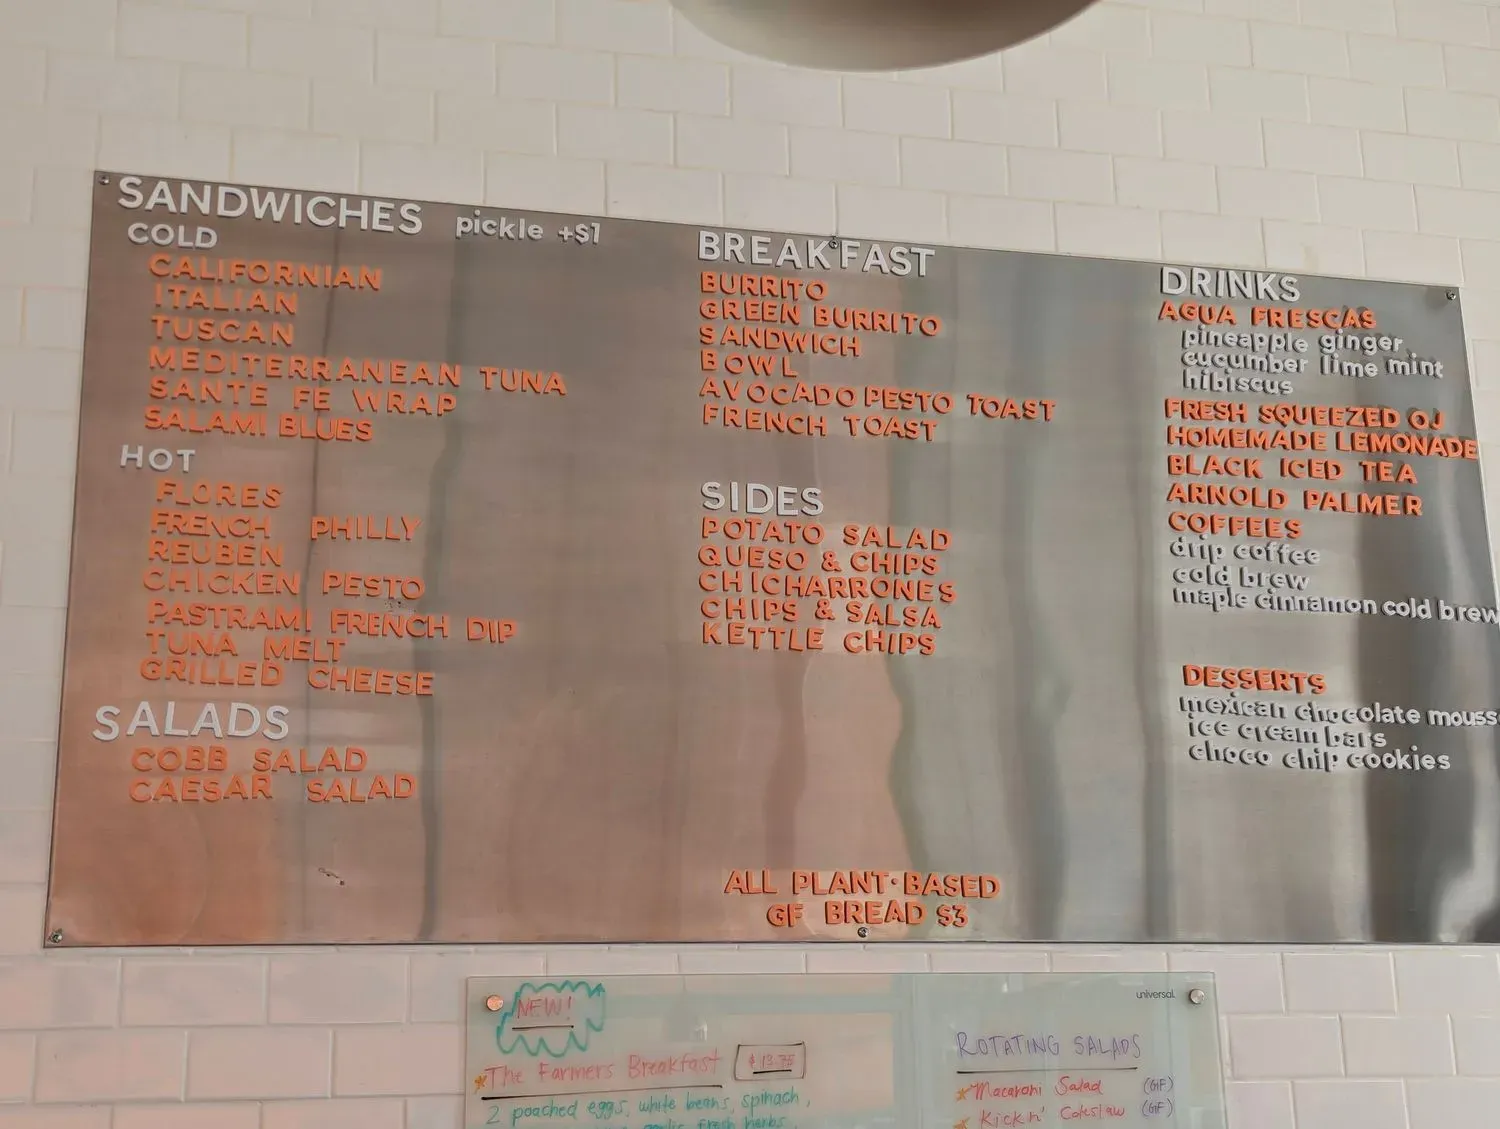 SANDWICHES pickle +$1
COLD
CALIFORNIAN
ITALIAN
TUSCAN
MEDITERRANEAN TUNA
SANTE FE WRAP
SALAMI BLUES
HOT
FLORES
FRENCH PHILLY
REUBEN
CHICKEN PESTO
PASTRAMI FRENCH DIP
TUNA MELT
GRILLED CHEESE
SALADS
COBB SALAD
CAESAR SALAD
BREAKFAST
BURRITO
GREEN BURRITO
SANDWICH
BOWL
AVOCADO PESTO TOAST
FRENCH TOAST
SIDES
POTATO SALAD
QUESO & CHIPS
CHICHARRONES
CHIPS & SALSA
KETTLE CHIPS
ALL PLANT-BASED
GF BREAD $3
DRINKS
AGUA FRESCAS
pineapple ginger
cucumber lime mint
hibiscus
FRESH SQUEEZED OJ
HOMEMADE LEMONADE
BLACK ICED TEA
ARNOLD PALMER
COFFEES
drip coffee
cold brew
maple cinnamon cold brew
DESSERTS
mexican chocolate mouss
ice cream bars
choco chip cookies
NEW!
The Farmers Breakfast $13.75
2 poached eggs, white beans, spinach,
garlic, fresh herbs,
universal
ROTATING SALADS
Macaroni Salad (GF)
Kickn' Coleslaw (GF)